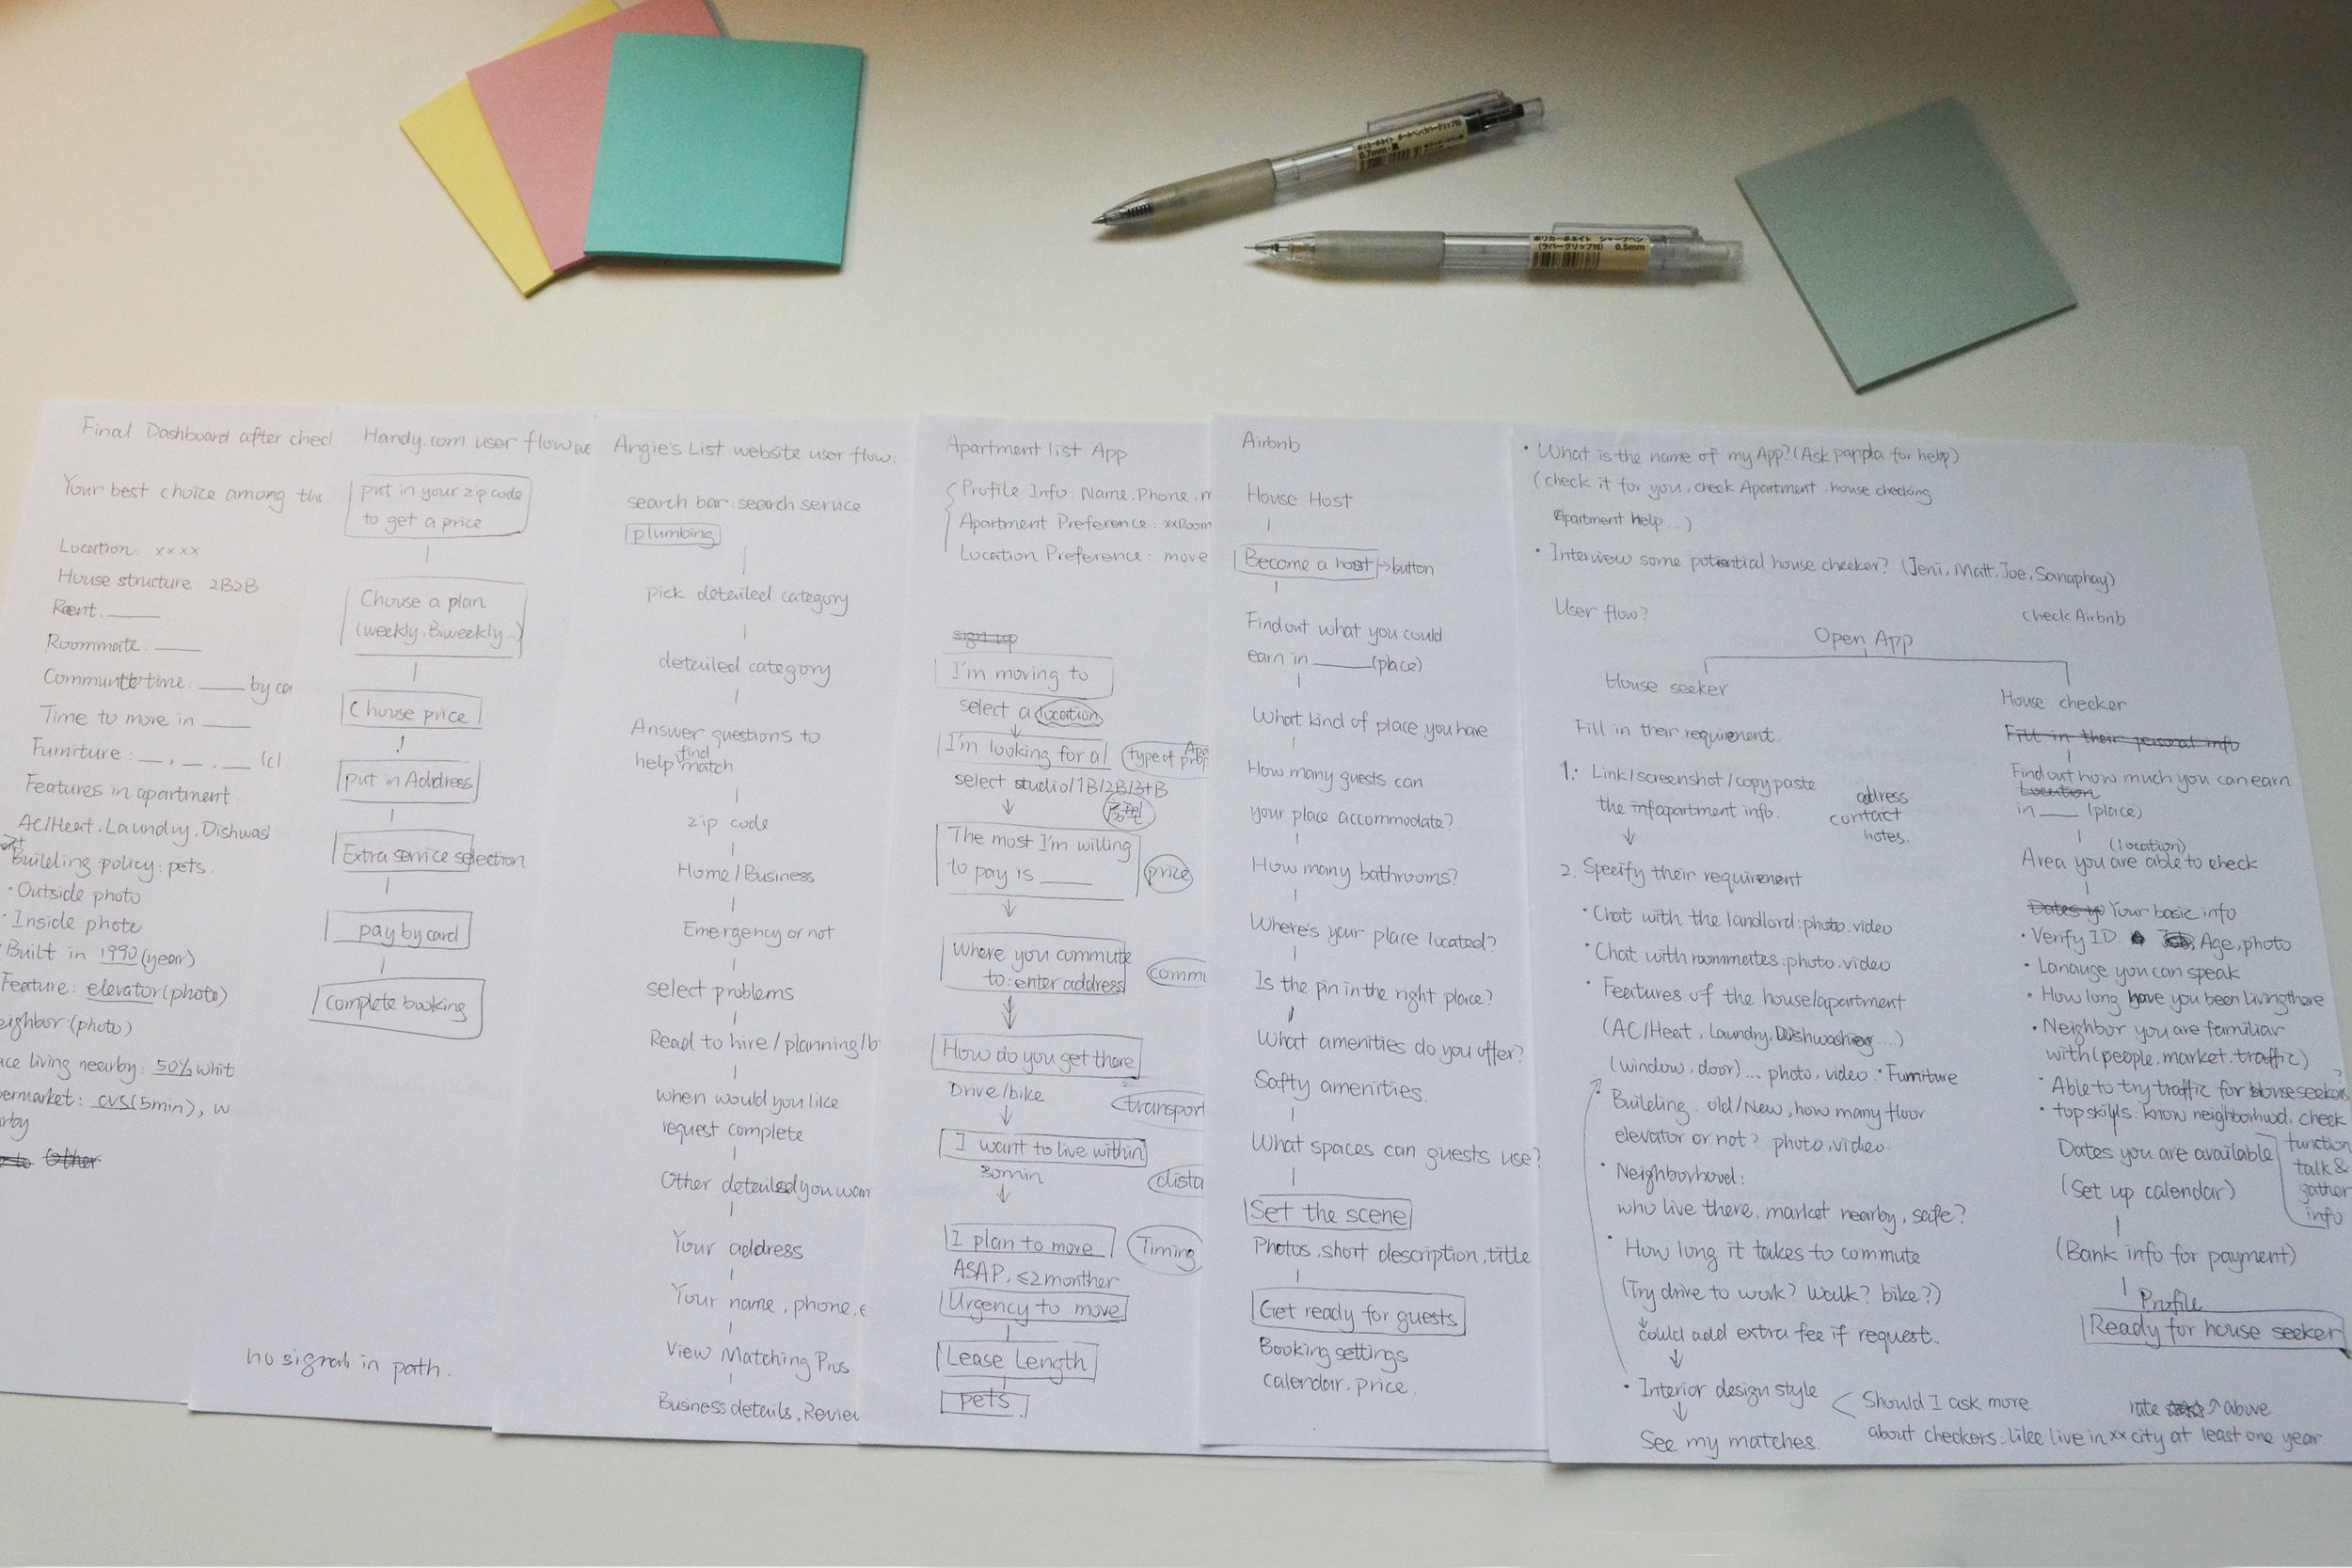 ポリカーボネイト ボールペン(ラバーグリップ付)
0.7mm・黒
ポリカーボネイト シャープペン
(ラバーグリップ付) 0.5mm
Final Dashboard after checl
Your best choice among the
Location: xxxx
House structure 2B2B
Rent: ____
Roommate: ____
Commute time: ____ by car
Time to more in ____
Furniture: __, __, __ (cl
Features in apartment:
AC/Heat, Laundry, Dishwas
Building policy: pets.
· Outside photo
· Inside photo
· Built in 1990 (year)
Feature: elevator (photo)
eighbor (photo)
ace living nearby: 50% whit
permarket: CVS (5min), w
rby
Other
Handy.com user flow
put in your zip code
to get a price
Choose a plan
(weekly. Biweekly...)
Choose price
put in Address
Extra service selection
pay by card
complete booking
no signal in path.
Angie's List website user flow:
search bar: search service
plumbing
pick detailed category
detailed category
Answer questions to
help find match
zip code
Home/Business
Emergency or not
select problems
Read to hire/planning/b
when would you like
request complete
Other detailed you wan
Your address
Your name, phone, e
View Matching Pros
Business details, Review
Apartment list App
Profile Info: Name, Phone, m
Apartment Preference: xxRoom
Location Preference: move
sign up
I'm moving to
select a location
I'm looking for a type of
select studio/1B/2B/3+B
The most I'm willing
to pay is ____ price
Where you commute
to: enter address comm
How do you get there
Drive/bike transport
I want to live within
30min dista
I plan to move Timing
ASAP, ≤2monther
Urgency to move
Lease Length
pets
Airbnb
House Host
Become a host → button
Find out what you could
earn in ____ (place)
What kind of place you have
How many guests can
your place accommodate?
How many bathrooms?
Where's your place located?
Is the pin in the right place?
What amenities do you offer?
Safty amenities.
What spaces can guests use?
Set the scene
Photos, short description, title
Get ready for guests
Booking settings
calendar, price.
· What is the name of my App? (Ask pappla for help)
(check it for you, check Apartment, house checking
Apartment Help...)
· Interview some potential house checker? (Jeni, Matt, Joe, Sanaphay)
User flow?
check Airbnb
Open App
House seeker
Fill in their requirement.
1. Link/screenshot/copy paste
the apartment info.
address
contact
notes.
2. Specify their requirement
· Chat with the landlord: photo, video
· Chat with roommates: photo, video
· Features of the house/apartment
(AC/Heat, Laundry, Dishwashing ...)
(window, door)... photo, video · Furniture
· Building: old/New, how many floor
elevator or not? photo, video
· Neighborhood:
who live there, market nearby, safe?
· How long it takes to commute
(Try drive to work? Walk? bike?)
could add extra fee if request.
· Interior design style
See my matches.
House checker
Fill in their personal info
Find out how much you can earn
Location
in ____ (place)
(location)
Area you are able to check
Dates yo Your basic info
· Verify ID. Age, photo
· Lanauge you can speak
· How long have you been living there
· Neighbor you are familiar
with (people, market, traffic)
· Able to try traffic for house seeker?
· top skills: know neighborhood, check
function
talk &
gather
info
Dates you are available
(Set up calendar)
(Bank info for payment)
Profile
Ready for house seeker
Should I ask more
about checkers. Like live in xx city at least one year
rate ↑ above